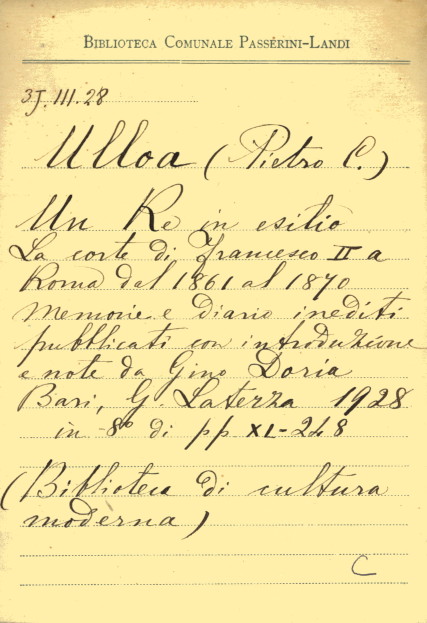 BIBLIOTECA COMUNALE PASSERINI-LANDI
3J.III.28
Ulloa (Pietro C.)
Un Re in esilio
La corte di Francesco II a
Roma dal 1861 al 1870
Memorie e diario inediti
pubblicati con introduzione
e note da Gino Doria
Bari, G. Laterza 1928
in -8º di pp XL-248
(Biblioteca di cultura
moderna)
C